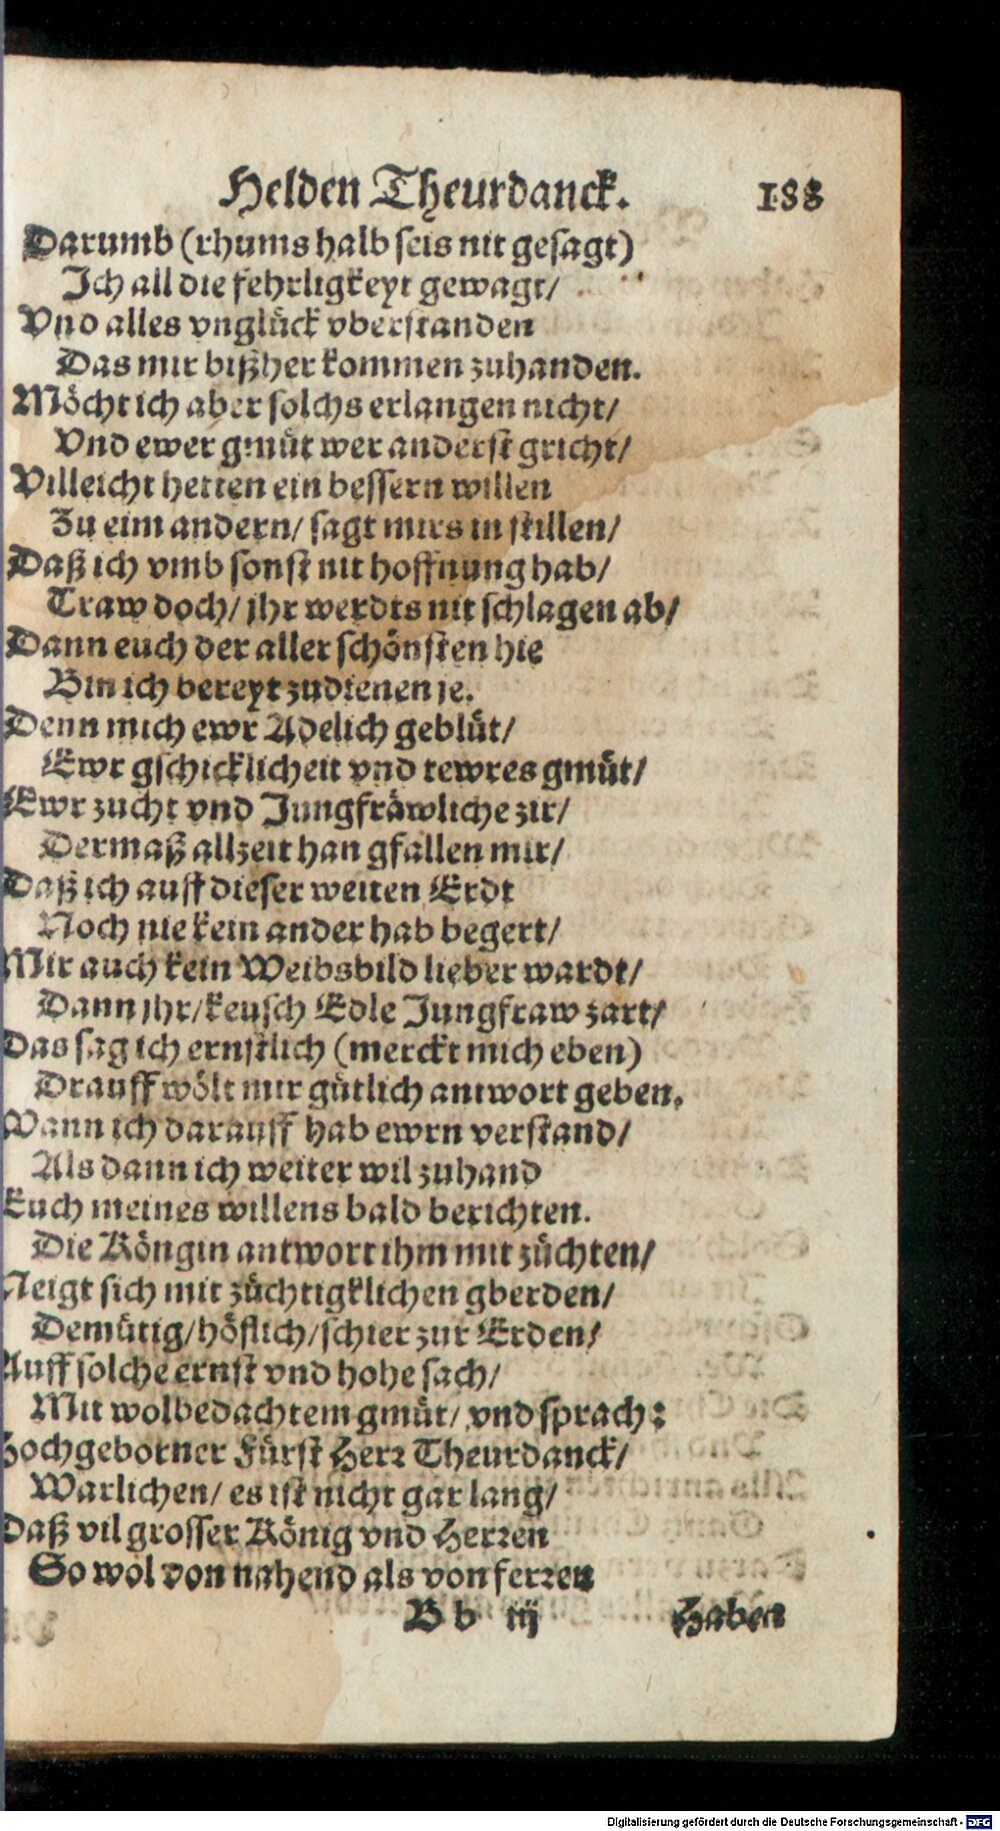 Helden Theurdanck. 188
Darumb (rhums halb seis nit gesagt)
Ich all die fehrligkeyt gewagt/
Vnd alles vnglück vberstanden
Das mir bißher kommen zuhanden.
Möcht ich aber solchs erlangen nicht/
Vnd ewer gmüt wer anderst gricht/
Villeicht hetten ein bessern willen
Zu eim andern/ sagt mirs in stillen/
Daß ich vmb sonst nit hoffnung hab/
Traw doch/ jhr werdts nit schlagen ab/
Dann euch der aller schönsten hie
Bin ich bereyt zudienen je.
Denn mich ewr Adelich geblüt/
Ewr gschicklicheit vnd tewres gmüt/
Ewr zucht vnd Jungfräwliche zir/
Dermaß allzeit han gfallen mir/
Daß ich auff dieser weiten Erdt
Noch nie kein ander hab begert/
Mir auch kein Weibsbild lieber wardt/
Dann jhr/ keusch Edle Jungfraw zart/
Das sag ich ernstlich (merckt mich eben)
Drauff wölt mir gütlich antwort geben.
Wann ich darauff hab ewrn verstand/
Als dann ich weiter wil zuhand
Euch meines willens bald berichten.
Die Köngin antwort ihm mit züchten/
Neigt sich mit züchtigklichen gberden/
Demütig/ höflich/ schier zur Erden/
Auff solche ernst vnd hohe sach/
Mit wolbedachtem gmüt/ vnd sprach:
Hochgeborner Fürst Herr Theurdanck/
Warlichen/ es ist nicht gar lang/
Daß vil grosser König vnd Herren
So wol von nahend als von ferren
B b iij Haben
Digitalisierung gefördert durch die Deutsche Forschungsgemeinschaft - DFG